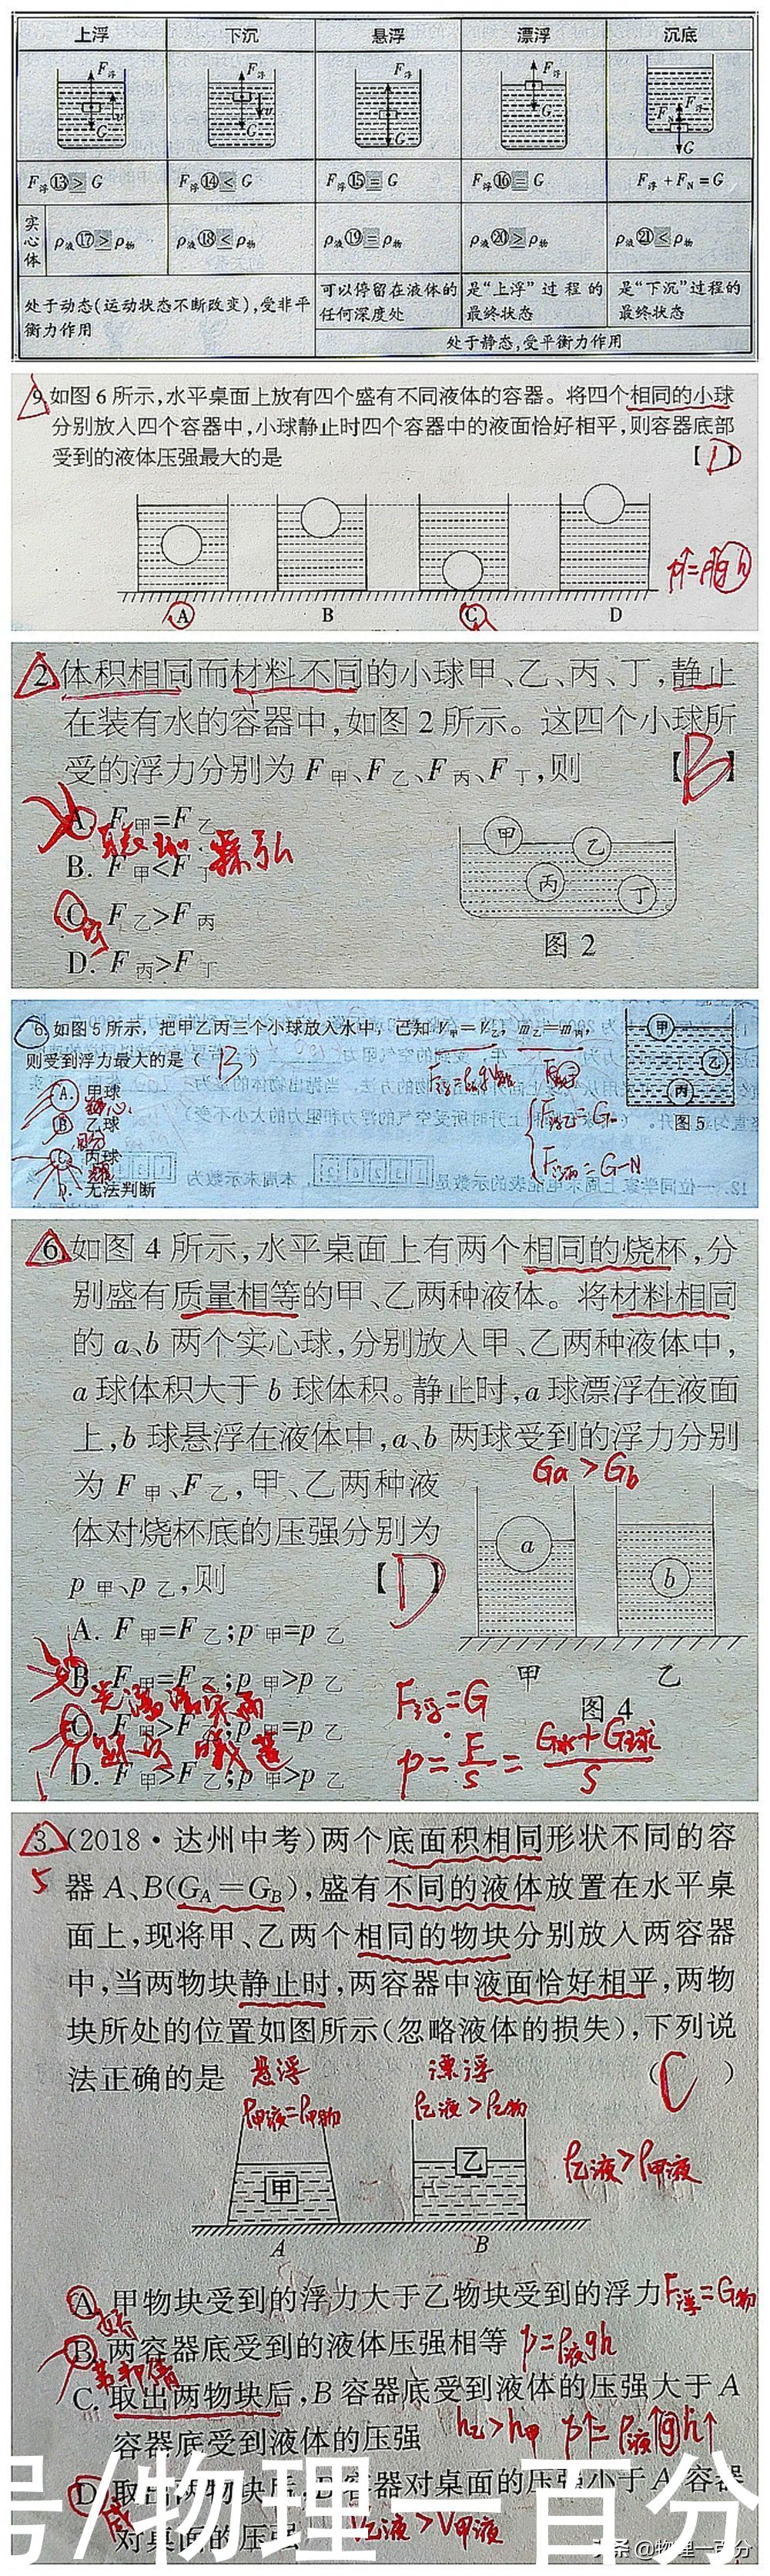 上浮 下沉 悬浮 漂浮 沉底
F浮 G v F浮 G v F浮 G F浮 G F浮 FN G
F浮⑬>G F浮⑭<G F浮⑮=G F浮⑯=G F浮+FN=G
实心体 ρ液⑰>ρ物 ρ液⑱<ρ物 ρ液⑲=ρ物 ρ液⑳>ρ物 ρ液㉑<ρ物
处于动态(运动状态不断改变),受非平衡力作用
可以停留在液体的任何深度处
是“上浮”过程的最终状态
是“下沉”过程的最终状态
处于静态,受平衡力作用
9.如图6所示,水平桌面上放有四个盛有不同液体的容器。将四个相同的小球
分别放入四个容器中,小球静止时四个容器中的液面恰好相平,则容器底部
受到的液体压强最大的是 【D】
p↑=ρ↑gh
A B C D
2.体积相同而材料不同的小球甲、乙、丙、丁,静止
在装有水的容器中,如图2所示。这四个小球所
受的浮力分别为F甲、F乙、F丙、F丁,则 【B】
A. F甲=F乙
B. F甲<F丁
C. F乙>F丙
D. F丙>F丁
甲 乙 丙 丁
图2
6.如图5所示,把甲乙丙三个小球放入水中,已知V甲=V乙,m乙=m丙,
则受到浮力最大的是(B)
A. 甲球
B. 乙球
C. 丙球
D. 无法判断
F浮乙=G
F浮丙=G-N
甲 乙 丙
图5
6.如图4所示,水平桌面上有两个相同的烧杯,分
别盛有质量相等的甲、乙两种液体。将材料相同
的a、b两个实心球,分别放入甲、乙两种液体中,
a球体积大于b球体积。静止时,a球漂浮在液面
上,b球悬浮在液体中,a、b两球受到的浮力分别
为F甲、F乙,甲、乙两种液
体对烧杯底的压强分别为
p甲、p乙,则 【D】
Ga>Gb
a b
甲 乙
图4
A. F甲=F乙;p甲=p乙
B. F甲=F乙;p甲>p乙
C. F甲>F乙;p甲=p乙
D. F甲>F乙;p甲>p乙
F浮=G
p=F/S=(G水+G球)/S
3.(2018·达州中考)两个底面积相同形状不同的容
5
器A、B(GA=GB),盛有不同的液体放置在水平桌
面上,现将甲、乙两个相同的物块分别放入两容器
中,当两物块静止时,两容器中液面恰好相平,两物
块所处的位置如图所示(忽略液体的损失),下列说
法正确的是 (C)
悬浮 漂浮
ρ甲液=ρ甲物 ρ乙液>ρ乙物
ρ乙液>ρ甲液
甲 乙
A B
A. 甲物块受到的浮力大于乙物块受到的浮力 F浮=G物
B. 两容器底受到的液体压强相等 p=ρ液gh
C. 取出两物块后,B容器底受到液体的压强大于A
容器底受到液体的压强 h乙>h甲 p↑=ρ液↑gh↑
D. 取出两物块后,B容器对桌面的压强小于A容器
对桌面的压强 V乙液>V甲液
号/物理一百分
头条 @物理一百分